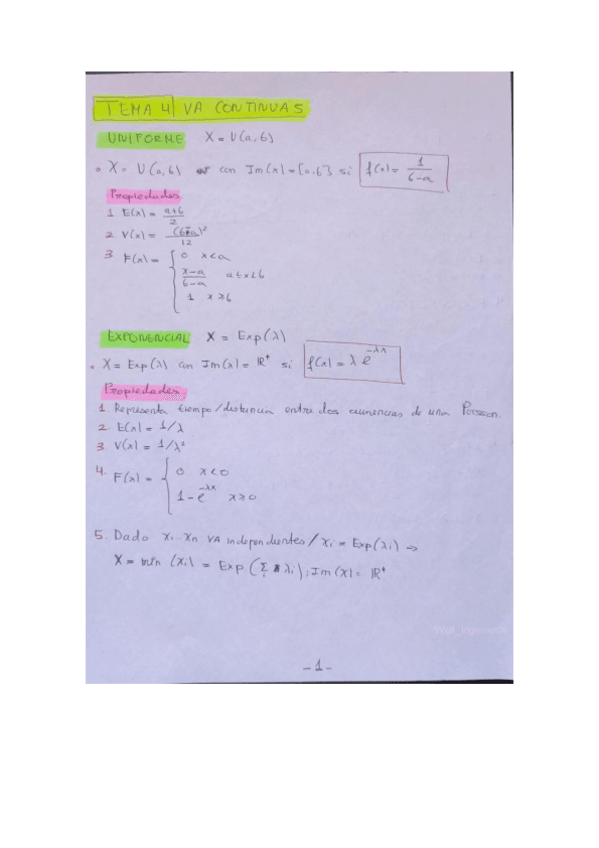 TEMA 4 | VA CONTINUAS
UNIFORME X = U(a,b)
• X = U(a,b) con Im(x) = [a,b] si f(x) = 1/(b-a)
Propiedades
1 E(x) = (a+b)/2
2 V(x) = (b-a)²/12
3 F(x) = { 0 x<a
(x-a)/(b-a) a≤x≤b
1 x≥b
EXPONENCIAL X = Exp(λ)
• X = Exp(λ) con Im(x) = ℝ⁺ si f(x) = λ e^(-λx)
Propiedades
1. Representa tiempo/distancia entre dos ocurrencias de una Poisson.
2. E(x) = 1/λ
3 V(x) = 1/λ²
4. F(x) = { 0 x<0
1-e^(-λx) x≥0
5. Dado x₁...xn VA independientes / xi = Exp(λi) ⇒
X = min (xi) = Exp (Σ λi); Im(X) = ℝ⁺
-1-